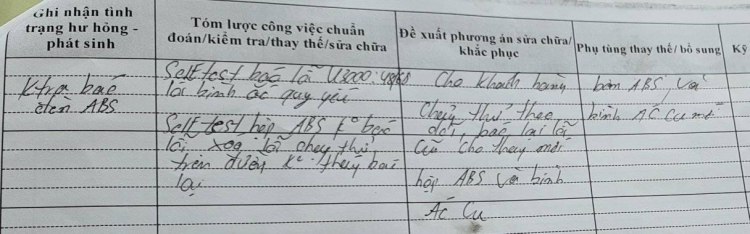 Ghi nhận tình trạng hư hỏng - phát sinh
Tóm lược công việc chuẩn đoán/kiểm tra/thay thế/sửa chữa
Đề xuất phương án sửa chữa/ khắc phục
Phụ tùng thay thế/ bổ sung
Ký
Ktra báo
đèn ABS
Self test báo lỗi U3000:49
lỗi bình ắc quy yếu
Self test hộp ABS K° báo
lỗi. xog lỗi chạy thử
trên đường K° thấy báo
lại
Cho khách hàng
chạy thử theo
dõi, báo lại lỗi
cũ cho thay mới
hộp ABS và bình
Ắc Cu
bơm ABS, và
bình ẮC Cu mới